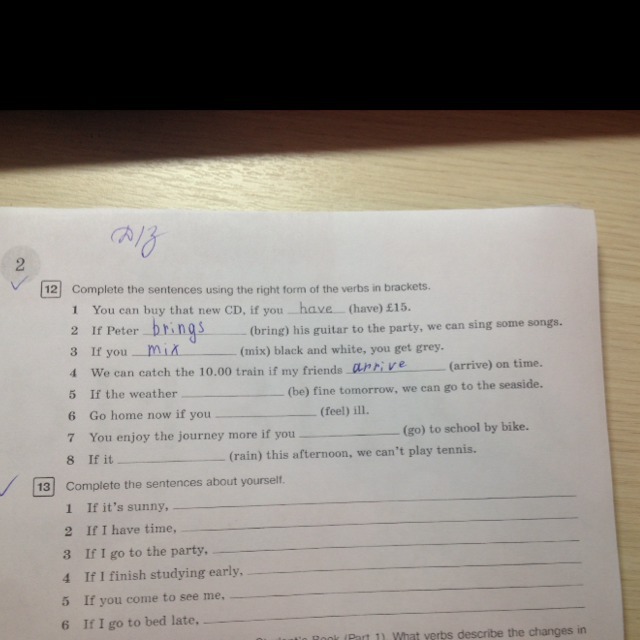 Д/з
2
12 Complete the sentences using the right form of the verbs in brackets.
1 You can buy that new CD, if you have (have) £15.
2 If Peter brings (bring) his guitar to the party, we can sing some songs.
3 If you mix (mix) black and white, you get grey.
4 We can catch the 10.00 train if my friends arrive (arrive) on time.
5 If the weather ____________ (be) fine tomorrow, we can go to the seaside.
6 Go home now if you ____________ (feel) ill.
7 You enjoy the journey more if you ____________ (go) to school by bike.
8 If it ____________ (rain) this afternoon, we can't play tennis.
13 Complete the sentences about yourself.
1 If it's sunny,
2 If I have time,
3 If I go to the party,
4 If I finish studying early,
5 If you come to see me,
6 If I go to bed late,
Student's Book (Part 1). What verbs describe the changes in